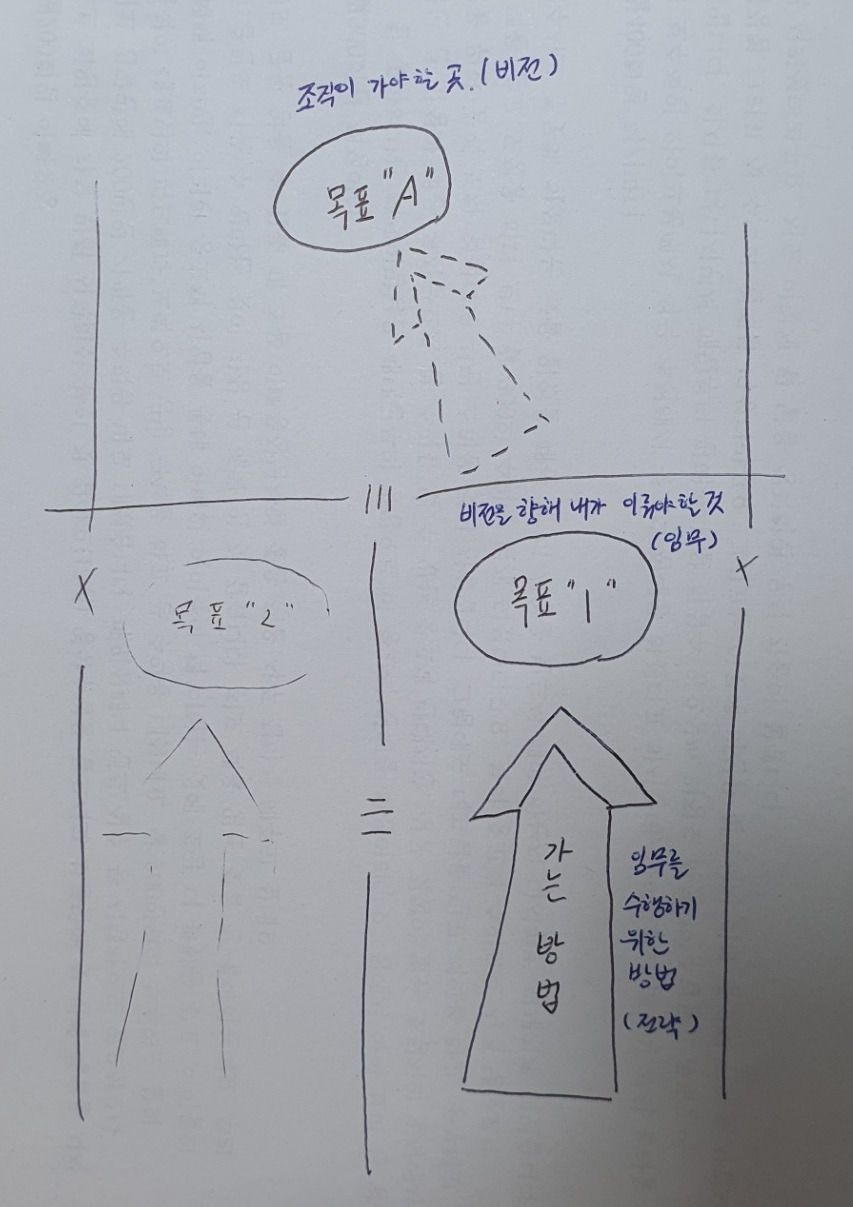 조직이 가야할 곳. (비전)
목표 "A"
비전을 향해 내가 이뤄야할 것
(임무)
목표 "2"
목표 "1"
가는 방법
임무를
수행하기
위한
방법
(전략)